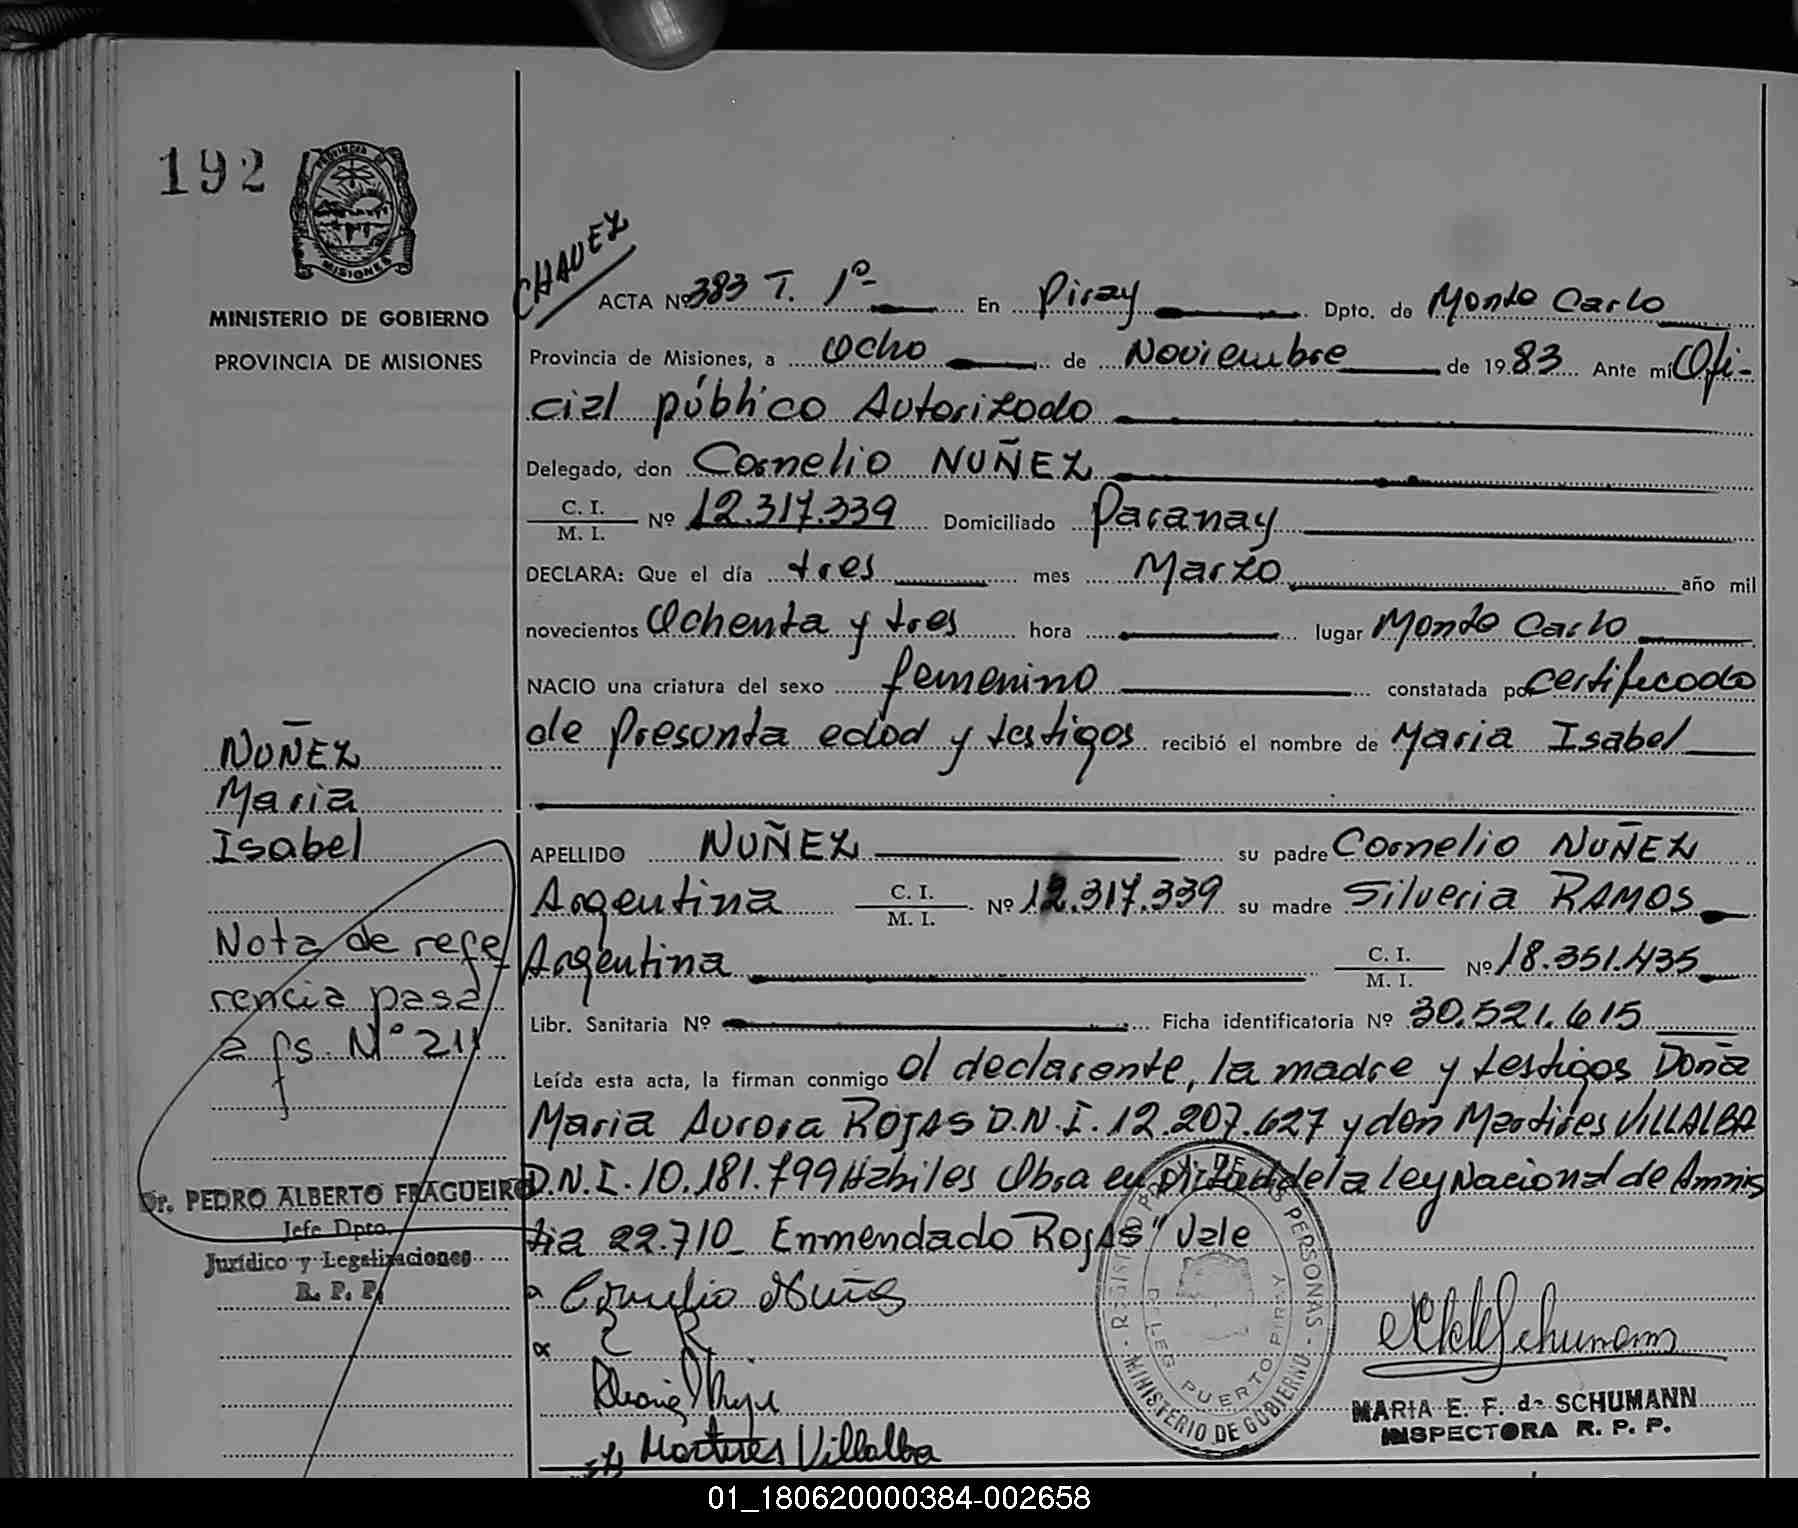 192
PROVINCIA DE
MISIONES
MINISTERIO DE GOBIERNO
PROVINCIA DE MISIONES
CHAVEZ
ACTA Nº 383 T. 1º En Piray Dpto. de Monte Carlo
Provincia de Misiones, a Ocho de Noviembre de 1983 Ante mí Ofi-
cial público Autorizado
Delegado, don Cornelio NUÑEZ
C. I. / M. I. Nº 12.317.339 Domiciliado Paranay
DECLARA: Que el día tres mes Marzo año mil
novecientos Ochenta y tres hora lugar Monte Carlo
NACIO una criatura del sexo femenino constatada por certificado
de presunta edad y testigos recibió el nombre de Maria Isabel
NUÑEZ
Maria
Isabel
APELLIDO NUÑEZ su padre Cornelio NUÑEZ
Argentina C. I. / M. I. Nº 12.317.339 su madre Silveria RAMOS
Argentina C. I. / M. I. Nº 18.351.435
Libr. Sanitaria Nº Ficha identificatoria Nº 30.521.615
Leída esta acta, la firman conmigo el declarante, la madre y testigos Doña
Maria Aurora ROJAS D.N.I. 12.207.627 y don Martires VILLALBA
D.N.I. 10.181.799 Habiles Obra en de la Ley Nacional de Amnis
tia 22.710_ Enmendado ROJAS" Vale
Nota de refe
rencia pasa
a fs. Nº 211
Dr. PEDRO ALBERTO FRAGUEIRO
Jefe Dpto.
Jurídico y Legalizaciones
R. P. P.
Cornelio Nuñez
Martires Villalba
DE LAS PERSONAS
MINISTERIO DE GOBIERNO
DELEG PUERTO PIRAY
Schumann
MARIA E. F. de SCHUMANN
INSPECTORA R. P. P.
01_180620000384-002658